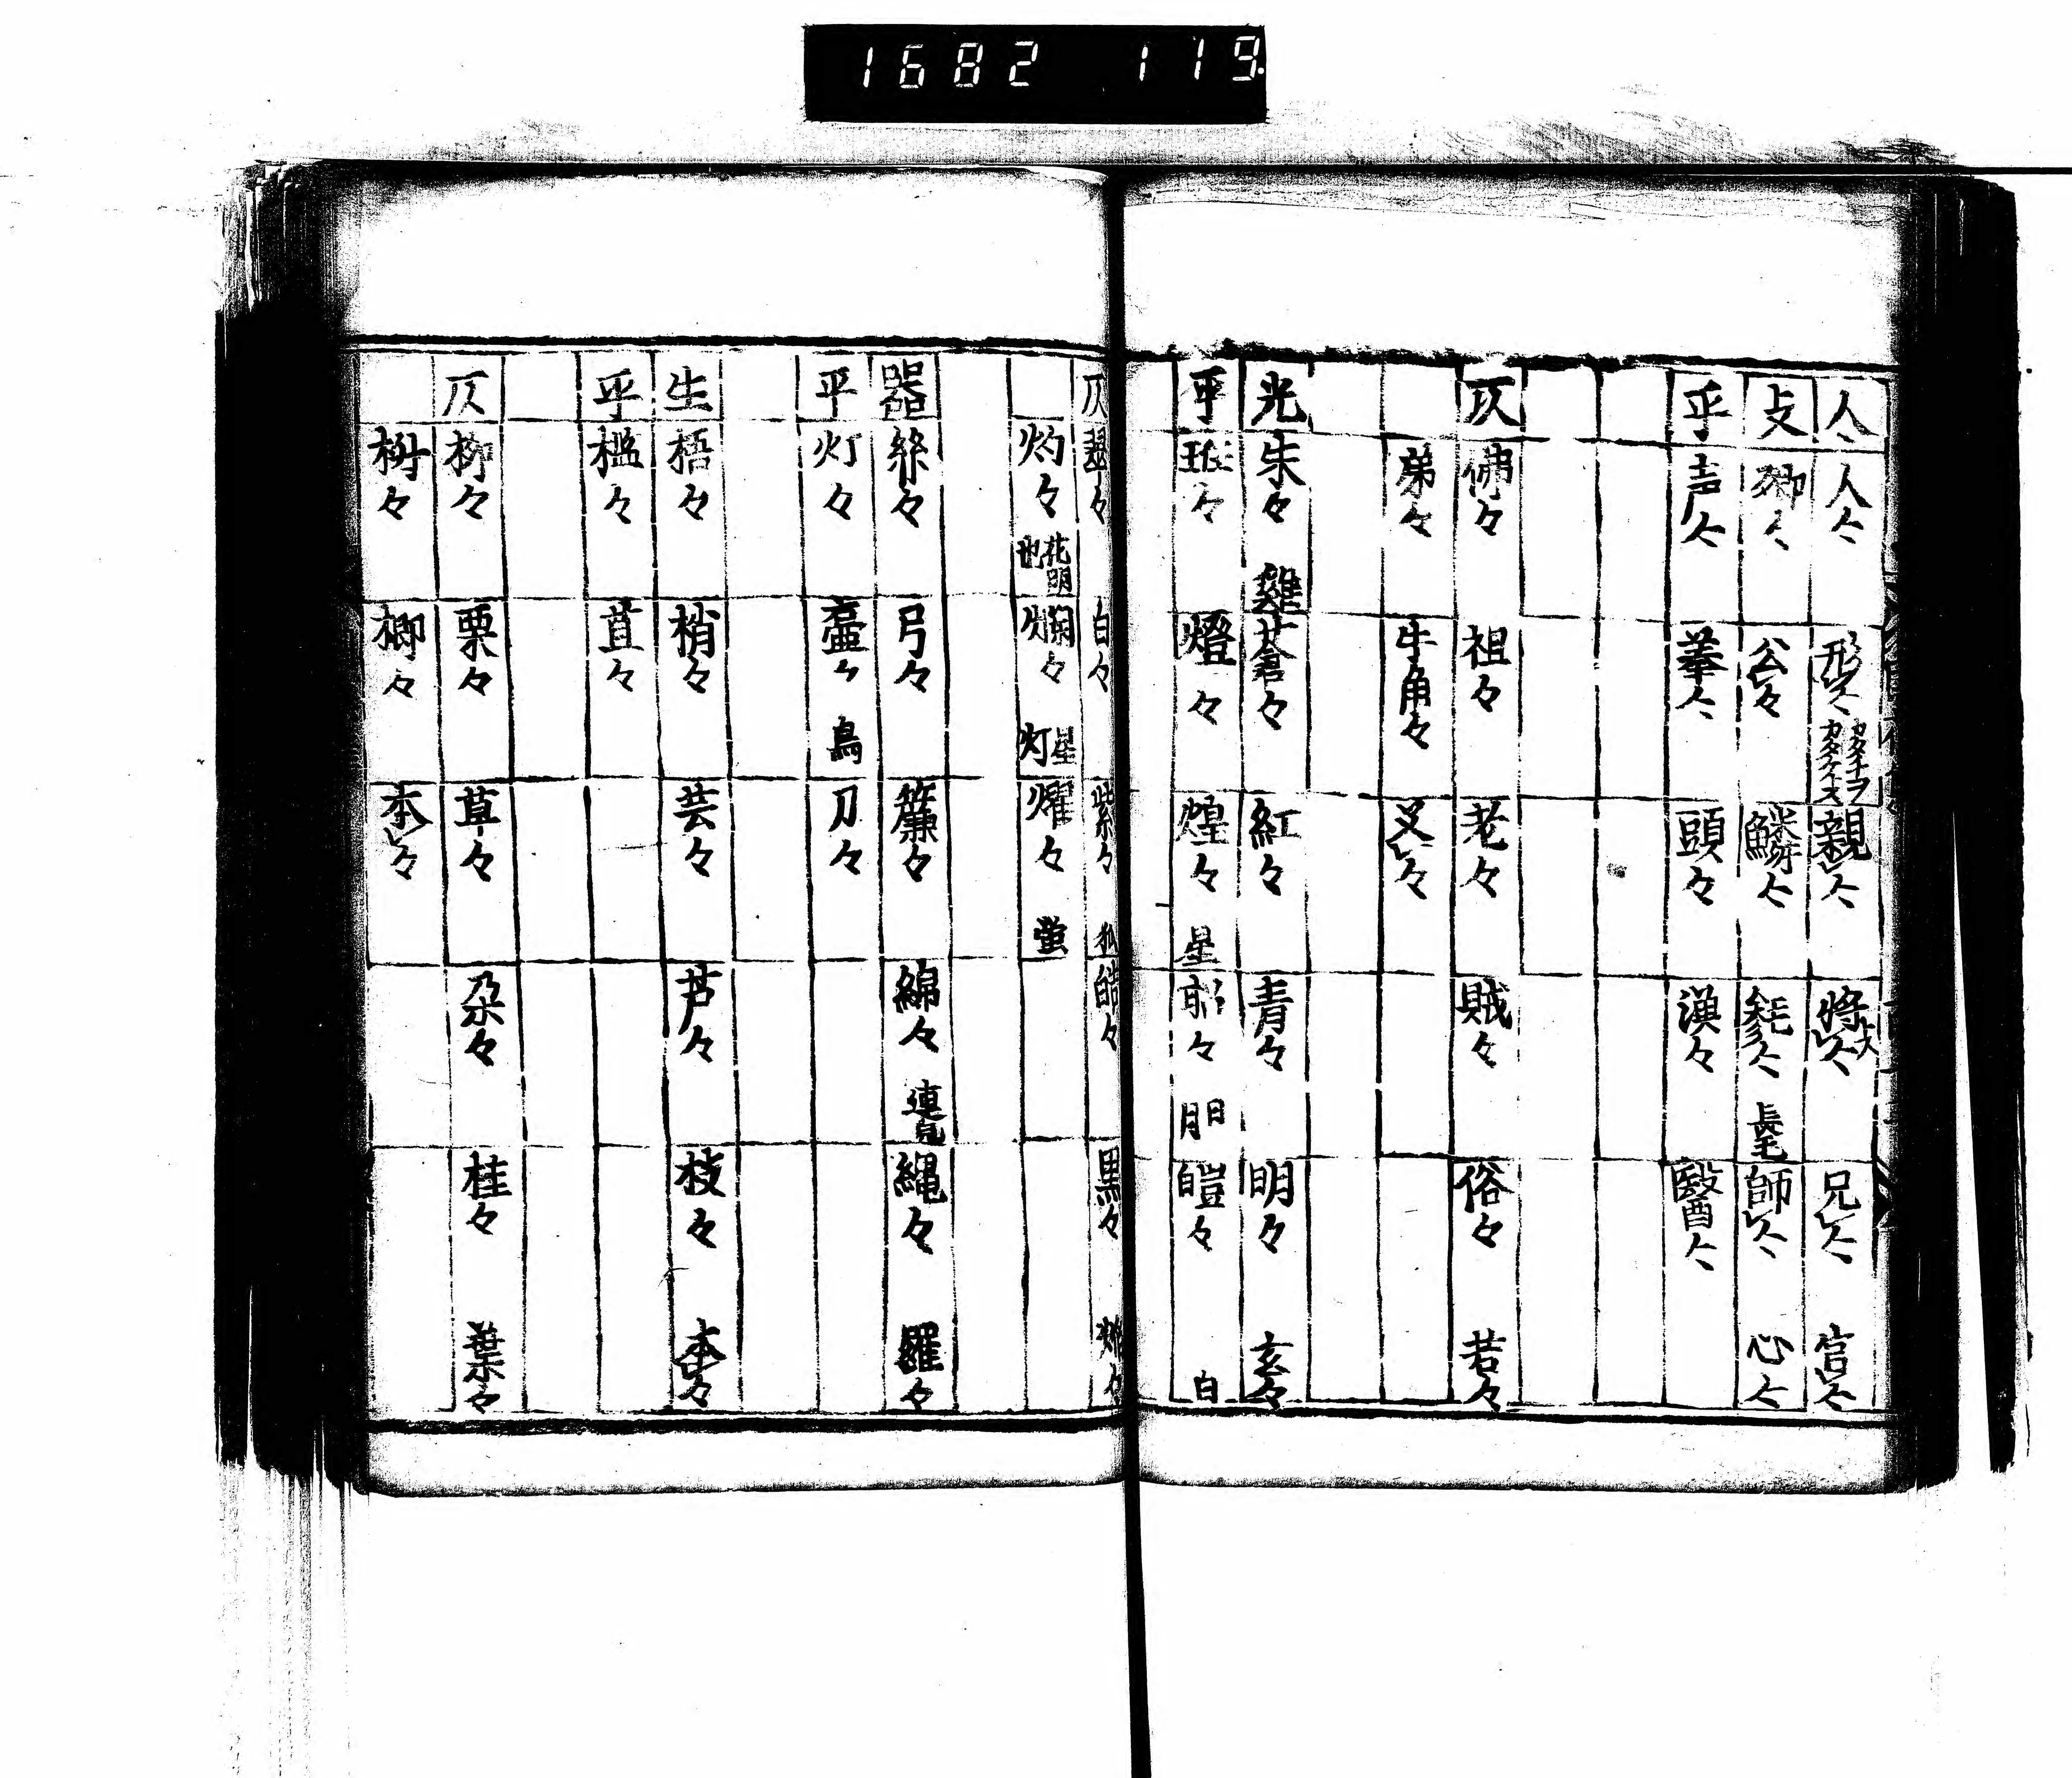 1682 119
人 人々 形々 カタチヲカタチトス 親々 將々 大 兄々 官々
攴 卿々 公々 鱗々 毿々 長毛 師々 心々
平 声々 羣々 頭々 漢々 醫々
仄 佛々 祖々 老々 賊々 俗々 若々
弟々 牛角々 叉々
光 朱々 雞 蒼々 紅々 青々 明々 玄々
平 燈々 煌々 星 々 日月 皚々 白
仄 翠々 白々 紫々 皓々 黒々
灼々 花明也 爛々 星灯 燿々 蛍
器 絲々 弓々 簾々 綿々 連 縄々 羅々
平 灯々 壷々 鳥 刀々
生 梧々 梢々 芸々 芦々 枝々 本々
平 榲々 苴々
仄 柳々 栗々 草々 朶々 桂々 葉々
栁々 李々